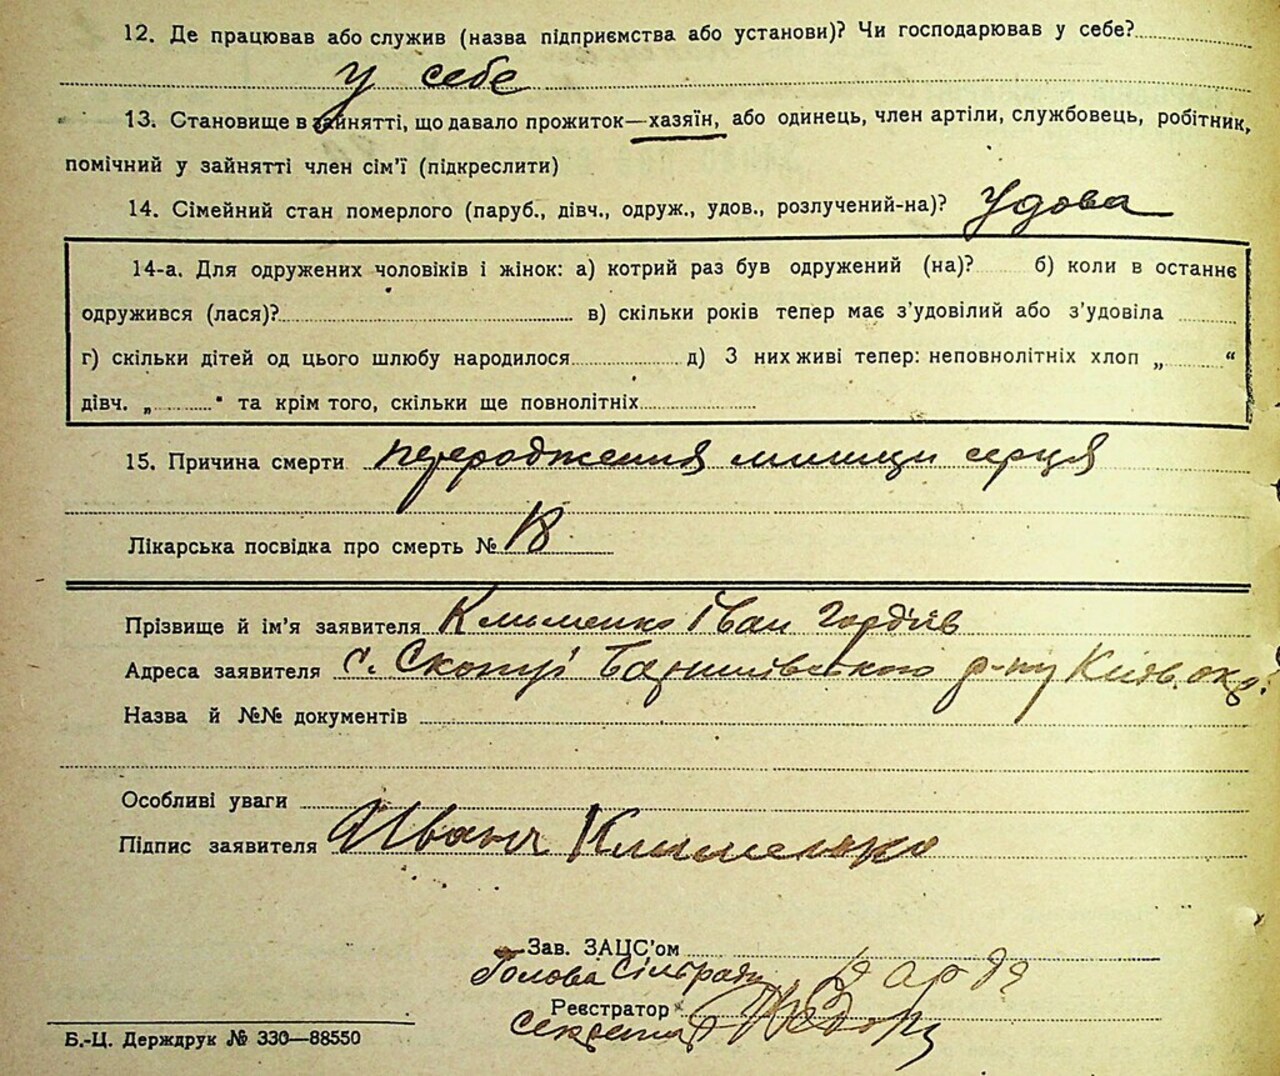 12. Де працював або служив (назва підприємства або установи)? Чи господарював у себе?
у себе
13. Становище в зайнятті, що давало прожиток—хазяїн, або одинець, член артілі, службовець, робітник,
помічний у зайнятті член сім'ї (підкреслити)
14. Сімейний стан померлого (паруб., дівч., одруж., удов., розлучений-на)? Удова
14-а. Для одружених чоловіків і жінок: а) котрий раз був одружений (на)? б) коли в останнє
одружився (лася)? в) скільки років тепер має з'удовілий або з'удовіла
г) скільки дітей од цього шлюбу народилося д) З них живі тепер: неповнолітніх хлоп „ “
дівч. „ " та крім того, скільки ще повнолітніх
15. Причина смерти переродження мишци серця
Лікарська посвідка про смерть № 18
Прізвище й ім'я заявителя Клименко Іван Гордіїв
Адреса заявителя с. Скопці Баришівського р-ну Київ. окр.
Назва й №№ документів
Особливі уваги
Підпис заявителя Иванъ Клименко
Зав. ЗАЦС'ом
Голова Сільради
Реєстратор
Секретар
Б.-Ц. Держдрук № 330—88550